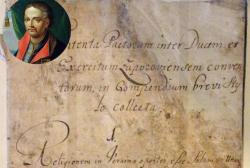 ntenta Pactorum inter Ducem et
Exercitum Zaporoviensem conven
torum, in Compendium brevi Sty
lo collecta.
1
Religionem in esse Solam